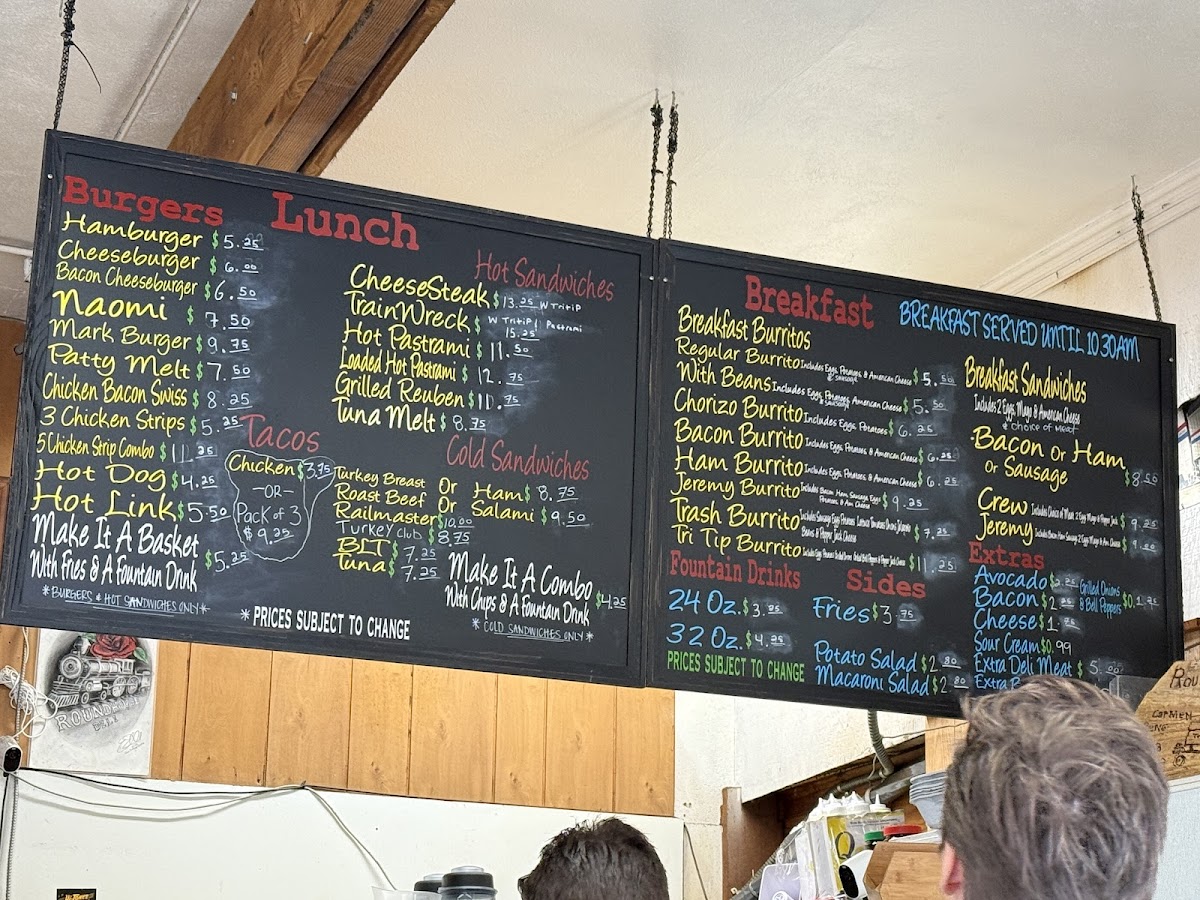 Burgers
Hamburger $5.25
Cheeseburger $6.00
Bacon Cheeseburger $6.50
Naomi $7.50
Mark Burger $9.75
Patty Melt $7.50
Chicken Bacon Swiss $8.25
3 Chicken Strips $5.25
5 Chicken Strip Combo $11.25
Hot Dog $4.25
Hot Link $5.50
Make It A Basket
With Fries & A Fountain Drink $5.25
*BURGERS & HOT SANDWICHES ONLY*
Lunch
Hot Sandwiches
CheeseSteak $13.25 W TRITIP
TrainWreck $ W TRITIP/ Pastrami
15.25
Hot Pastrami $11.50
Loaded Hot Pastrami $12.75
Grilled Reuben $10.75
Tuna Melt $8.75
Tacos
Chicken $3.75
-OR-
Pack of 3
$9.25
Cold Sandwiches
Turkey Breast Or Ham $8.75
Roast Beef Or Salami $9.50
Railmaster $10.00
Turkey Club $8.75
BLT $7.25
Tuna $7.25
Make It A Combo
With Chips & A Fountain Drink $4.25
*COLD SANDWICHES ONLY*
*PRICES SUBJECT TO CHANGE
Breakfast
BREAKFAST SERVED UNTIL 10:30AM
Breakfast Burritos
Regular Burrito Includes Eggs, Potatoes, & American Cheese $5.50
& sausage
With Beans Includes Eggs, Potatoes, American Cheese $5.50
& sausage
Chorizo Burrito Includes Eggs, Potatoes $6.25
Bacon Burrito Includes Eggs, Potatoes, & American Cheese $6.25
Ham Burrito Includes Eggs, Potatoes, & American Cheese $6.25
Jeremy Burrito Includes Bacon Ham Sausage Eggs $9.25
Potatoes & American Cheese
Trash Burrito Includes Sausage Eggs Potatoes Lettuce Tomatoes Onions Jalapeño $7.25
Beans & Pepper Jack Cheese
Tri Tip Burrito $11.25
Breakfast Sandwiches
Includes 2 Eggs, Mayo & American Cheese
& choice of meat
Bacon Or Ham
Or Sausage $8.50
Crew Includes Choice of Meat, 2 Eggs Mayo & Pepper Jack $9.25
Jeremy Includes Bacon Ham Sausage 2 Eggs Mayo & Ame Cheese $9.00
Fountain Drinks
24 Oz. $3.25
32 Oz. $4.25
PRICES SUBJECT TO CHANGE
Sides
Fries $3.75
Potato Salad $2.80
Macaroni Salad $2.80
Extras
Avocado $2.25
Grilled Onions
& Bell Peppers
Bacon $2
Cheese $1.75
Sour Cream $0.99
Extra Deli Meat $5.00
Extra
ROUNDHOUSE